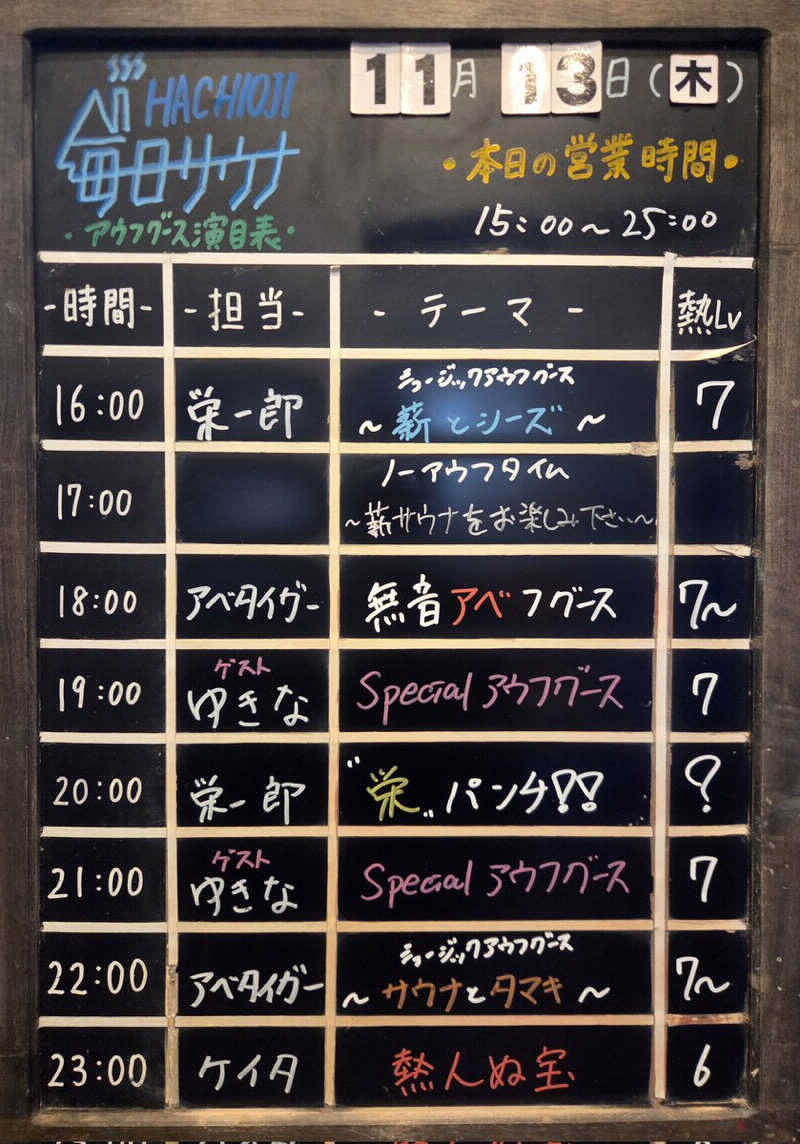 HACHIOJI
毎日サウナ
・アウフグース演目表・
11月13日(木)
・本日の営業時間・
15:00〜25:00
-時間- -担当- -テーマ- 熱Lv
16:00 栄一郎 ミュージックアウフグース 〜薪とシーズ〜 7
17:00 ノーアウフタイム 〜薪サウナをお楽しみ下さい〜
18:00 アベタイガー 無音アベフグース 7〜
19:00 ゲスト ゆきな Special アウフグース 7
20:00 栄一郎 "栄"パンチ!! ?
21:00 ゲスト ゆきな Special アウフグース 7
22:00 アベタイガー ミュージックアウフグース 〜サウナとタマキ〜 7〜
23:00 ケイタ 熱んぬ宝 6